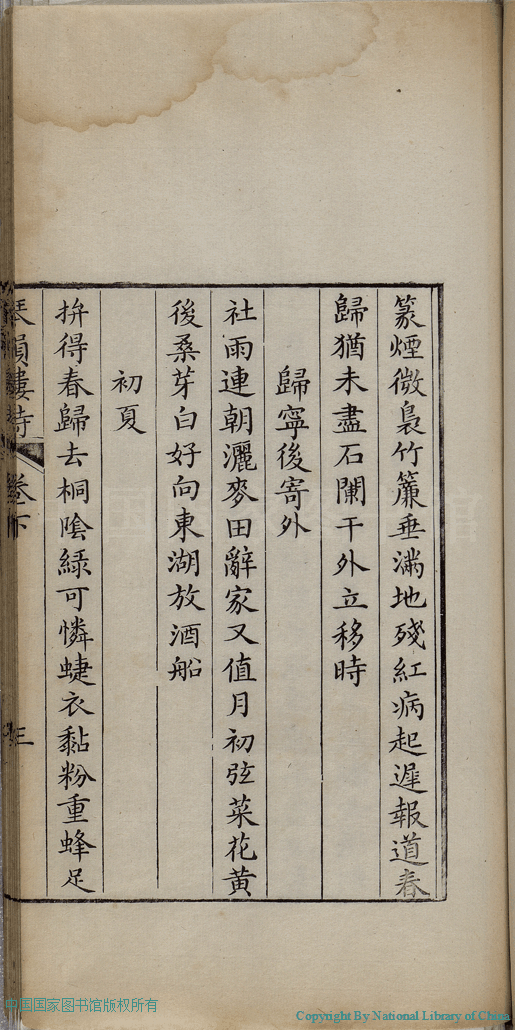 篆煙微裊竹簾垂滿地殘紅病起遲報道春
歸猶未盡石闌干外立移時
歸寧後寄外
社雨連朝灑麥田辭家又值月初弦菜花黃
後桑芽白好向東湖放酒船
初夏
拚得春歸去桐陰綠可憐蜨衣黏粉重蜂足
韻樓詩 卷下
三
中国国家图书馆版权所有
Copyright By National Library of China